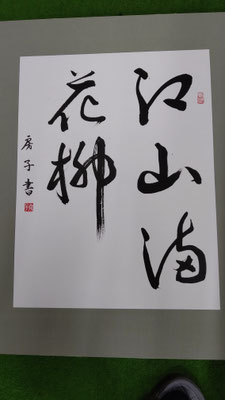 江山満
花柳
房子書